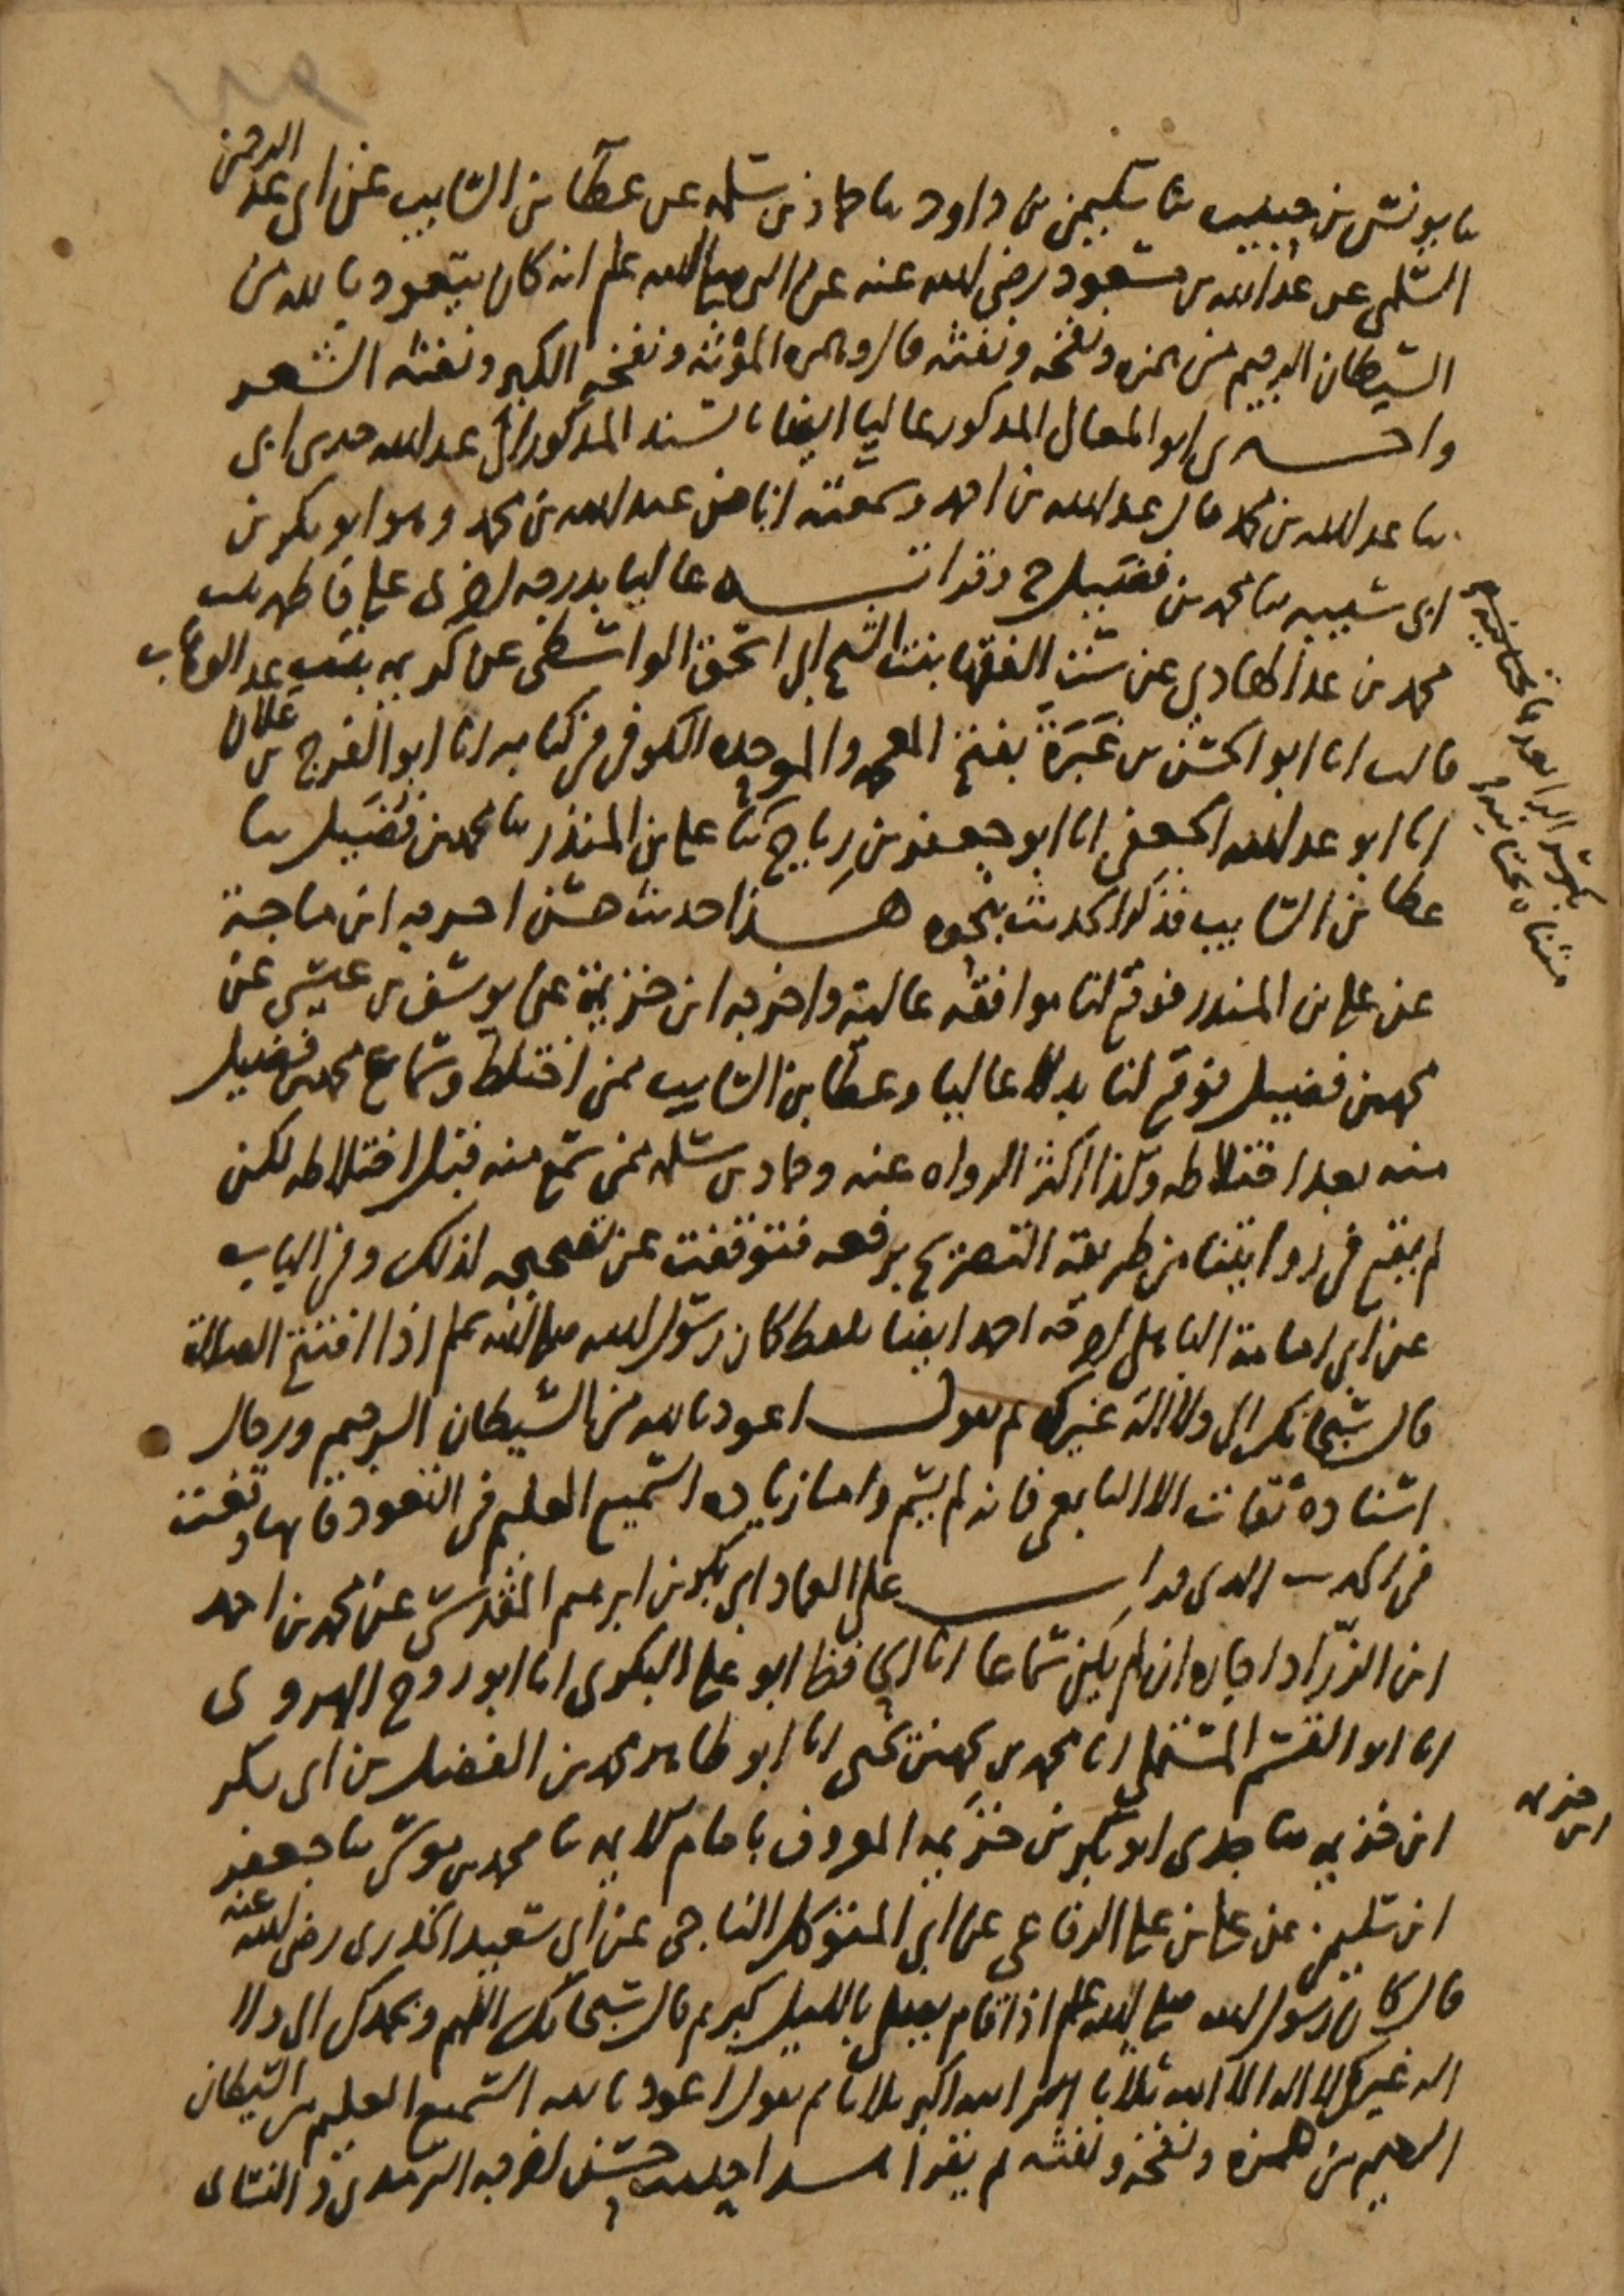 ١٨٩
ثنا يونس بن حبيب ثنا سليمن بن داود ثنا حماد بن سلمه عن عطا بن السايب عن ابي عبد الرحمن
السلمي عن عبد الله بن مسعود رضي الله عنه عن النبي صلى الله عليه وسلم انه كان يتعوذ بالله من
الشيطان الرجيم من همزه ونفخه ونفثه قال وهمزه الموته ونفخه الكبر ونفثه الشعر
واخبرني ابو المعالي المذكور عاليا ايضا بالسند المذكور الى عبد الله حدثني ابي
ثنا عبد الله بن محمد قال عبد الله بن احمد وسمعته انا من عبد الله بن محمد وهو ابو بكر بن
ابي شيبه ثنا محمد بن فضيل ح وقرات عاليا بدرجه اخرى على فاطمه بنت
محمد بن عبد الهادي عن ست الفقها بنت الشيخ ابي اسحق الواسطي عن كريمه بنت عبد الوهاب
قالت انا ابو الحسن بن غبرة بفتح المعجمه والموحده الكوفي في كتابه انا ابو الفرج بن علان
انا ابو عبد الله الجعفي انا ابو جعفر بن رباح ثنا علي بن المنذر ثنا محمد بن فضيل ثنا
عطا بن السايب فذكر الحديث بنحوه هذا حديث حسن اخرجه ابن ماجة
عن علي بن المنذر فوقع لنا موافقه عالية واخرجه ابن خزيمة عن يوسف بن عيسى عن
محمد بن فضيل فوقع لنا بدلا عاليا وعطا بن السايب ممن اختلط وسماع محمد بن فضيل
منه بعد اختلاطه وكذا اكثر الرواه عنه وحماد بن سلمه ممن سمع منه قبل اختلاطه لكن
لم يقع في روايتنا من طريقه التصريح برفعه فتوقفت عن تصحيحه لذلك وفي الباب
عن ابي امامة الباهلي اخرجه احمد ايضا بلفظ كان رسول الله صلى الله عليه وسلم اذا افتتح الصلاة
قال سبحانك الى ولا اله غيرك ثم يقول اعوذ بالله من الشيطان الرجيم ورجال
اسناده ثقات الا التابعي فانه لم يسم واما زياده السميع العليم في التعوذ فانها وقعت
في الحديث الذي قرات على العماد ابي بكر بن ابرهيم المقدسي عن محمد بن احمد
ابن الزراد اجازه ان لم يكن سماعا انا الحافظ ابو علي البكري انا ابو روح الهروي
انا ابو القسم المستملي انا محمد بن محمد بن يحيى انا ابو طاهر محمد بن الفضل بن ابي بكر
ابن خزيمه ثنا جدي ابو بكر بن خزيمه المعروف بامام الايمه ثنا محمد بن موسى ثنا جعفر
ابن سليمن عن علي بن علي الرفاعي عن ابي المتوكل الناجي عن ابي سعيد الخدري رضي الله عنه
قال كان رسول الله صلى الله عليه وسلم اذا قام يصلي بالليل كبر ثم قال سبحانك اللهم وبحمدك الى ولا
اله غيرك لا اله الا الله ثلاثا الله اكبر ثلاثا ثم يقول اعوذ بالله السميع العليم من الشيطان
الرجيم من همزه ونفخه ونفثه ثم يقرا هذا حديث حسن اخرجه الترمذي و النسائي